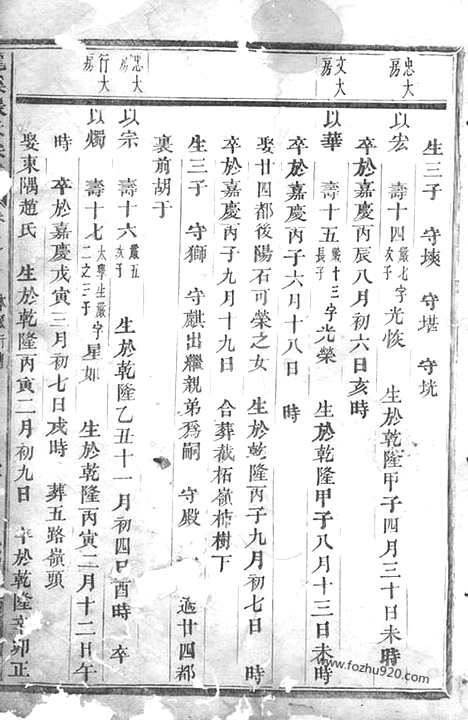 生三子 守埉 守堪 守垙
忠大房
以宏 壽十四 嚴七次子 字光恢 生於乾隆甲子四月三十日未時
卒於嘉慶丙辰八月初六日亥時
文大房
以華 壽十五 嚴十三長子 字光榮 生於乾隆甲子八月十三日未時
卒於嘉慶丙子六月十八日 時
娶廿四都後陽石可榮之女 生於乾隆丙子九月初七日 時
卒於嘉慶丙子九月十九日 合葬菽柘嶺柿樹下
生三子 守獅 守麒出繼親弟爲嗣 守殿 適廿四都
裏前胡于
忠大房
以宗 壽十六 嚴五次子 生於乾隆乙丑十一月初四日酉時 卒
行大房
以燭 壽十七 太學生嚴二之三子 字星如 生於乾隆丙寅二月十二日午
時 卒於嘉慶戊寅三月初七日戌時 葬五路嶺頭
娶東隅趙氏 生於乾隆丙寅二月初九日 卒於乾隆辛卯正
www.fozhu920.com